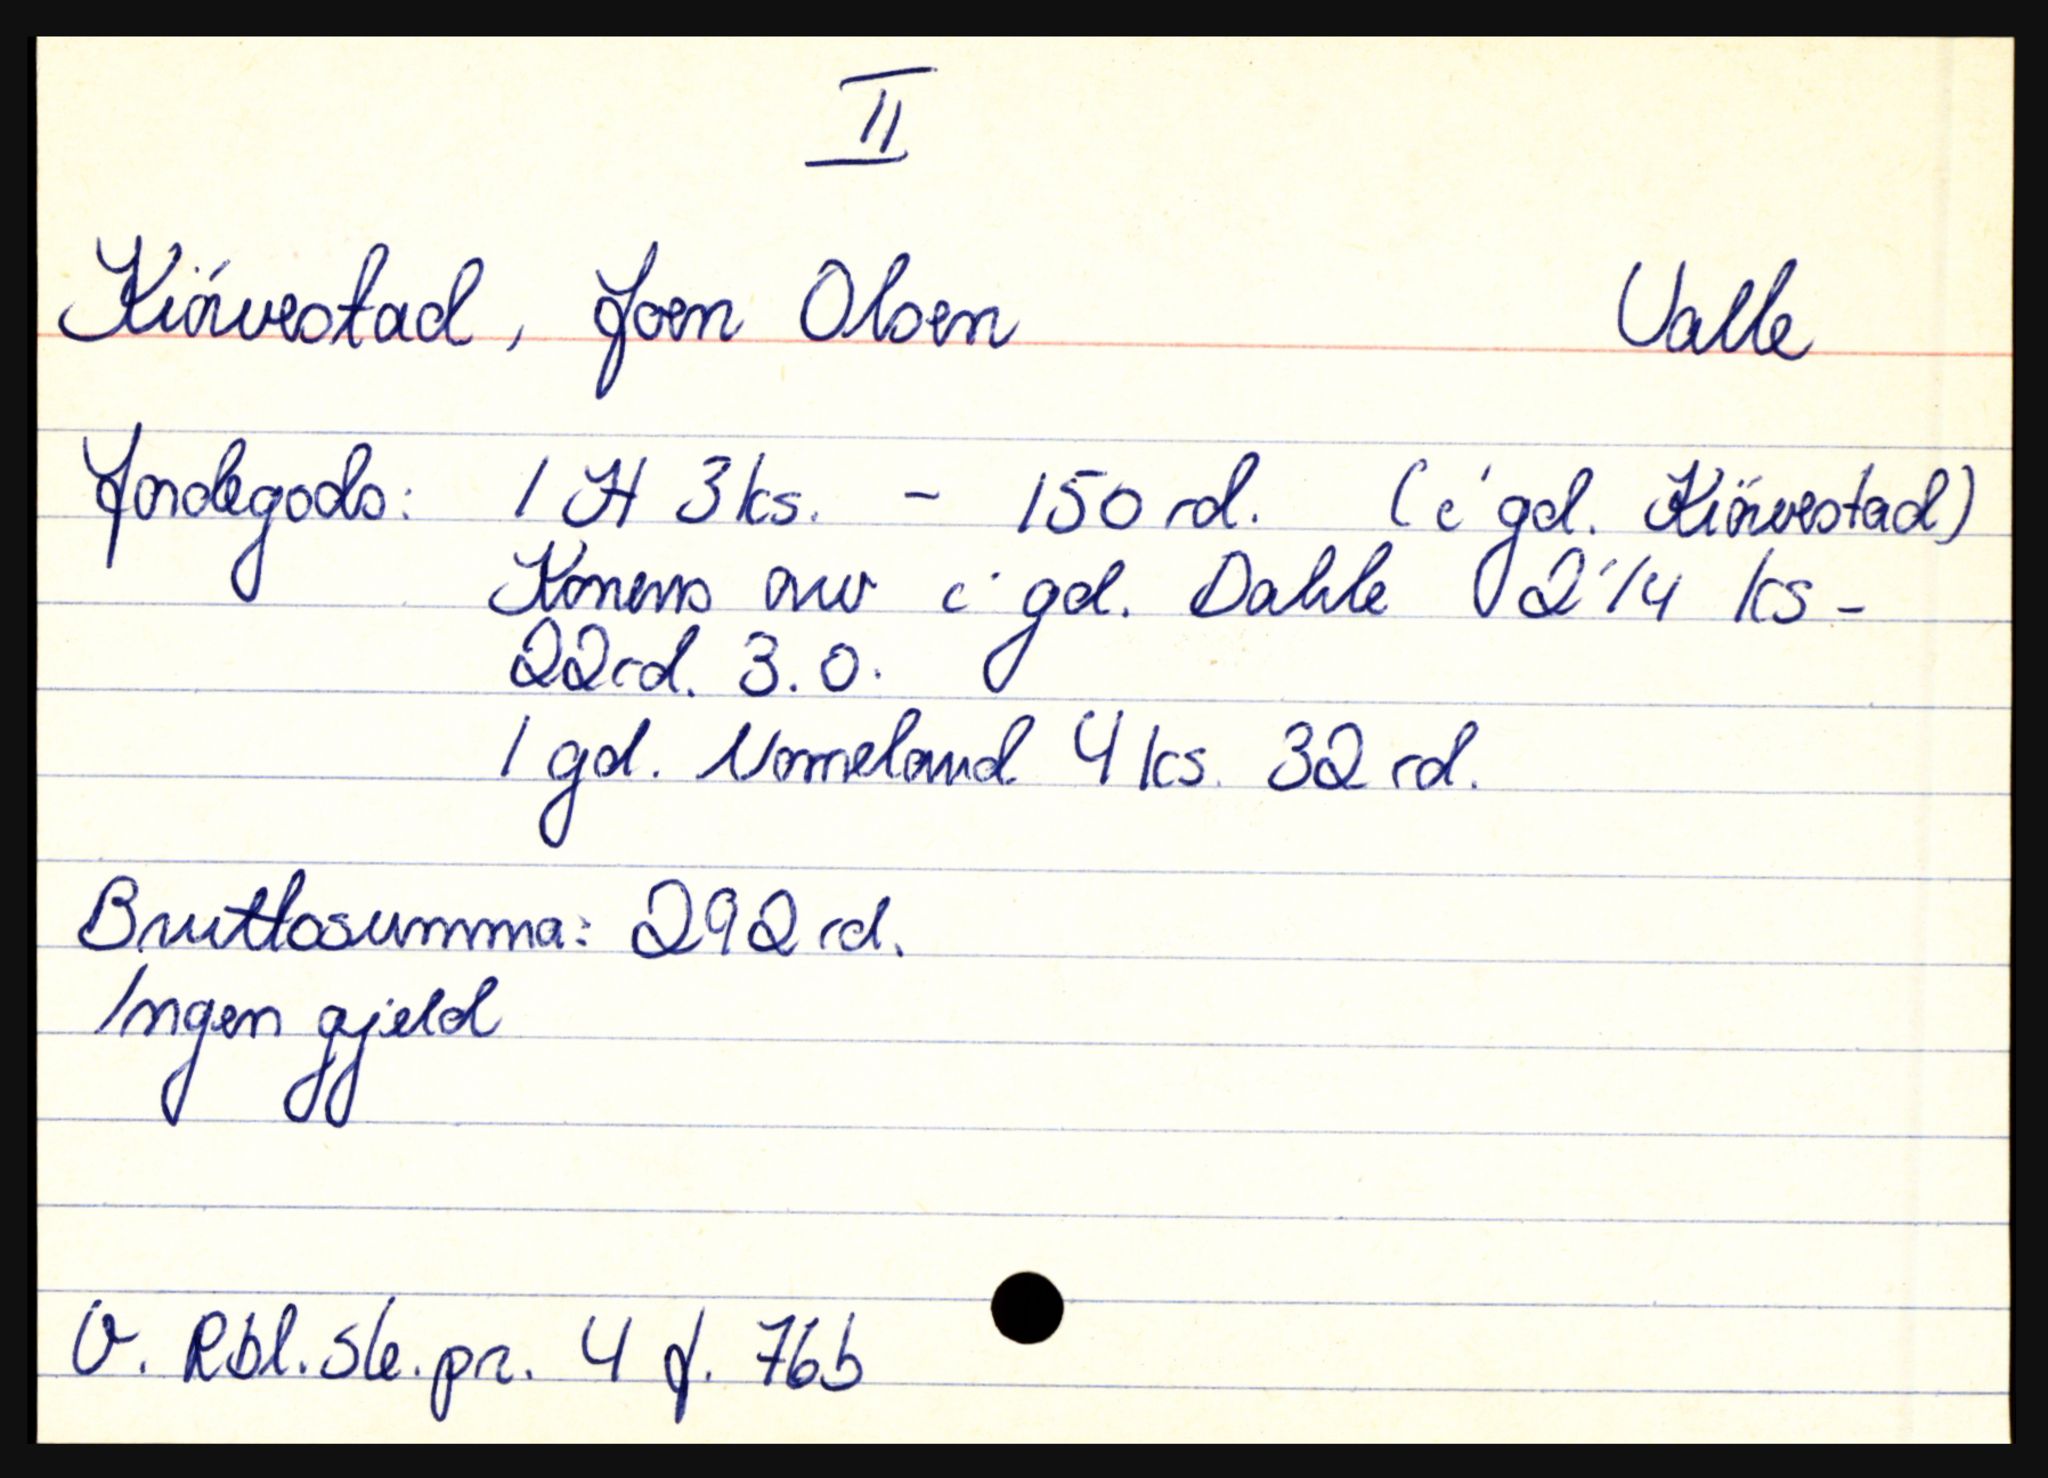 II
Kiörvestad, Joen Olsen Valle
Jordegods: 1 H 3 ks. - 150 rd. (i gd. Kiörvestad)
Konens arv i gd. Dahle 2 1/4 ks -
22 rd. 3. 0.
I gd. Nomeland 4 ks. 32 rd.
Bruttosumma: 292 rd.
Ingen gjeld
V. Rbl. sk. pr. 4 f. 76b